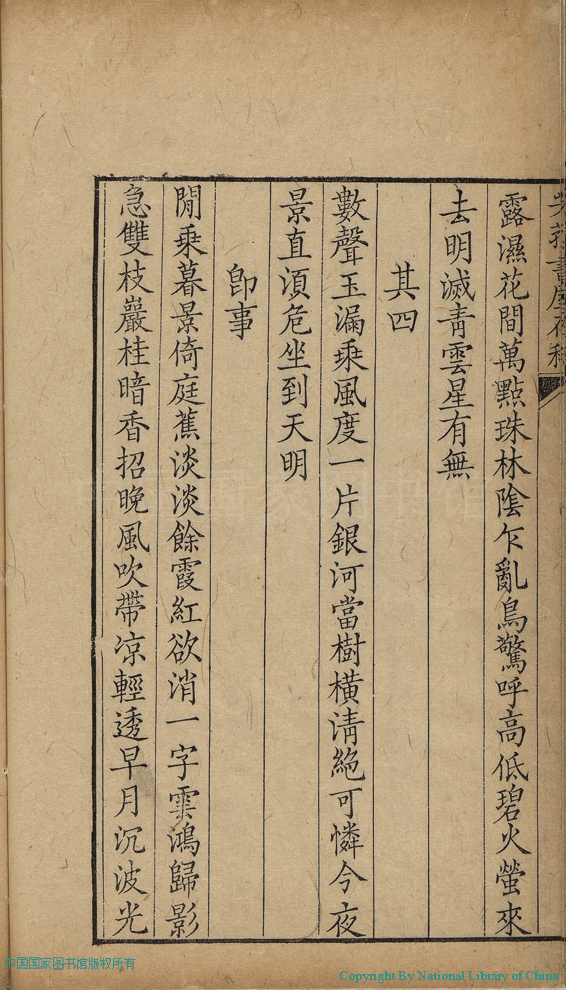 露濕花間萬點珠林陰乍亂鳥驚呼高低碧火螢來
去明滅青雲星有無
其四
數聲玉漏乗風度一片銀河當樹橫淸絶可憐今夜
景直湏危坐到天明
卽事
閒乗暮景倚庭蕉淡淡餘霞紅欲消一字雲鴻歸影
急雙枝巖桂暗香招晚風吹帶凉輕透早月沉波光
中国国家图书馆版权所有
Copyright By National Library of China